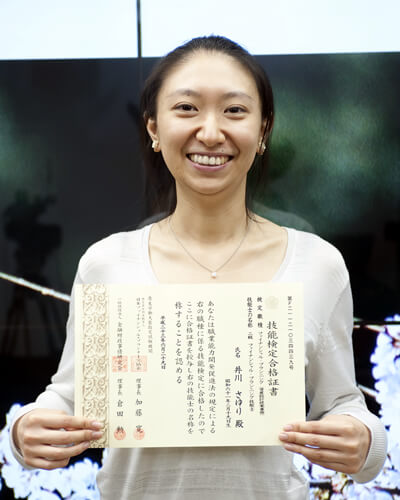 第F二一一二一〇三四四三九号
技能検定合格証書
検定職種 ファイナンシャル・プランニング
技能士の名称 二級 ファイナンシャル・プランニング技能士
氏名 井川 さゆり 殿
昭和六十一年三月十九日生
あなたは職業能力開発促進法の規定による
右の職種に係る技能検定に合格したので
ここに合格証書を授与し右の技能士の名称を
称することを認める
平成二十三年六月二十九日
厚生労働大臣指定試験機関
理事長 加藤 寛
一般社団法人 金融財政事情研究会
理事長 倉田 勲